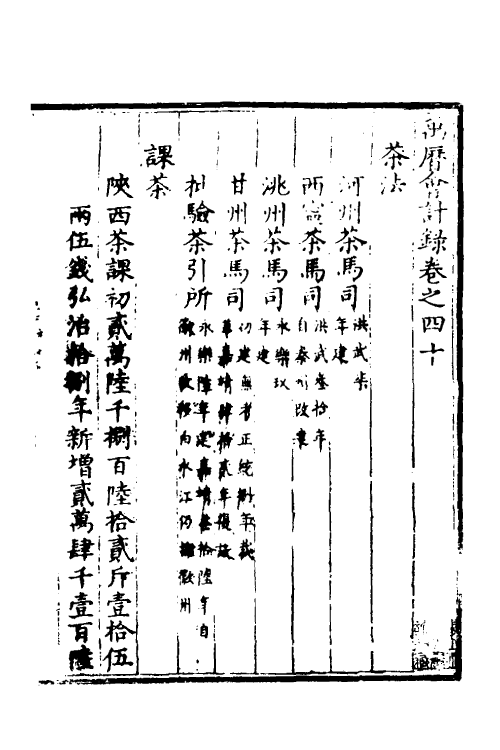 萬曆會計錄卷之四十
茶法
河州茶馬司洪武柒年建
西寧茶馬司洪武叁拾年自秦州改建
洮州茶馬司永樂玖年建
甘州茶馬司初建無考正統捌年裁革嘉靖肆拾貳年復設
批驗茶引所永樂陸年建嘉靖叁拾陸年自徽州改移白水江仍
課茶
陝西茶課初貳萬陸千捌百陸拾貳斤壹拾伍
兩伍錢弘治拾捌年新增貳萬肆千壹百陸